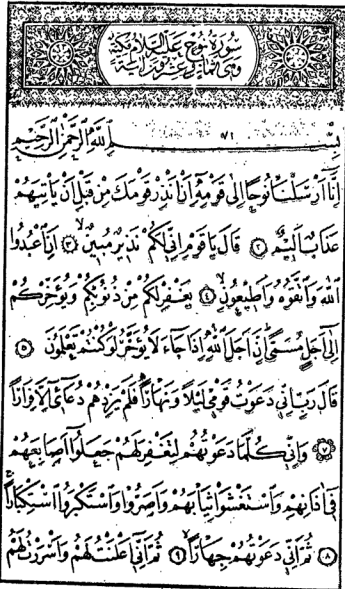 سُورَةُ نُوحٍ عَلَيْهِ السَّلَامُ مَكِّيَّة
وَهِيَ ثَمَانٍ وَعِشْرُونَ اٰيَة
٧١
بِسْمِ اللّٰهِ الرَّحْمٰنِ الرَّحِيمِ
اِنَّٓا اَرْسَلْنَا نُوحًا اِلٰى قَوْمِهٖٓ اَنْ اَنْذِرْ قَوْمَكَ مِنْ قَبْلِ اَنْ يَأْتِيَهُمْ
عَذَابٌ اَلٖيمٌ ٢ قَالَ يَا قَوْمِ اِنّٖي لَكُمْ نَذٖيرٌ مُبٖينٌ ٣ اَنِ اعْبُدُوا
اللّٰهَ وَاتَّقُوهُ وَاَطٖيعُونِ ٤ يَغْفِرْ لَكُمْ مِنْ ذُنُوبِكُمْ وَيُؤَخِّرْكُمْ
اِلٰٓى اَجَلٍ مُسَمًّى اِنَّ اَجَلَ اللّٰهِ اِذَا جَٓاءَ لَا يُؤَخَّرُ لَوْ كُنْتُمْ تَعْلَمُونَ ٥
قَالَ رَبِّ اِنّٖي دَعَوْتُ قَوْمٖي لَيْلًا وَنَهَارًا فَلَمْ يَزِدْهُمْ دُعَٓاءٖٓي اِلَّا فِرَارًا
٧ وَاِنّٖي كُلَّمَا دَعَوْتُهُمْ لِتَغْفِرَ لَهُمْ جَعَلُٓوا اَصَابِعَهُمْ
فٖٓي اٰذَانِهِمْ وَاسْتَغْشَوْا ثِيَابَهُمْ وَاَصَرُّوا وَاسْتَكْبَرُوا اسْتِكْبَارًا
٨ ثُمَّ اِنّٖي دَعَوْتُهُمْ جِهَارًا ٩ ثُمَّ اِنّٖٓي اَعْلَنْتُ لَهُمْ وَاَسْرَرْتُ لَهُمْ